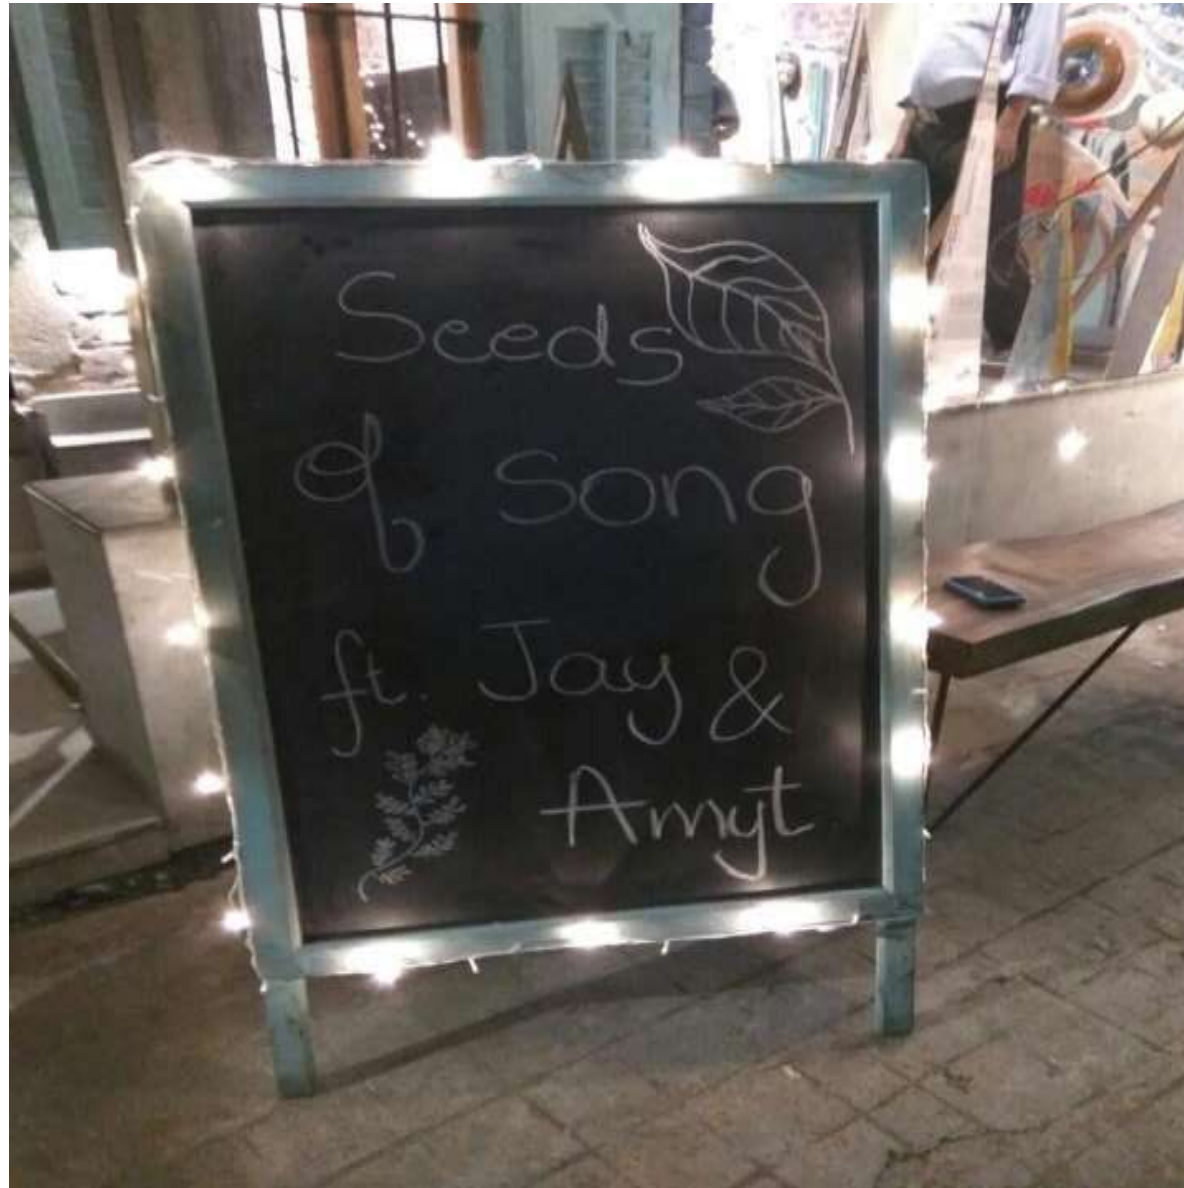 Seeds
of song
ft. Jay &
Amyt